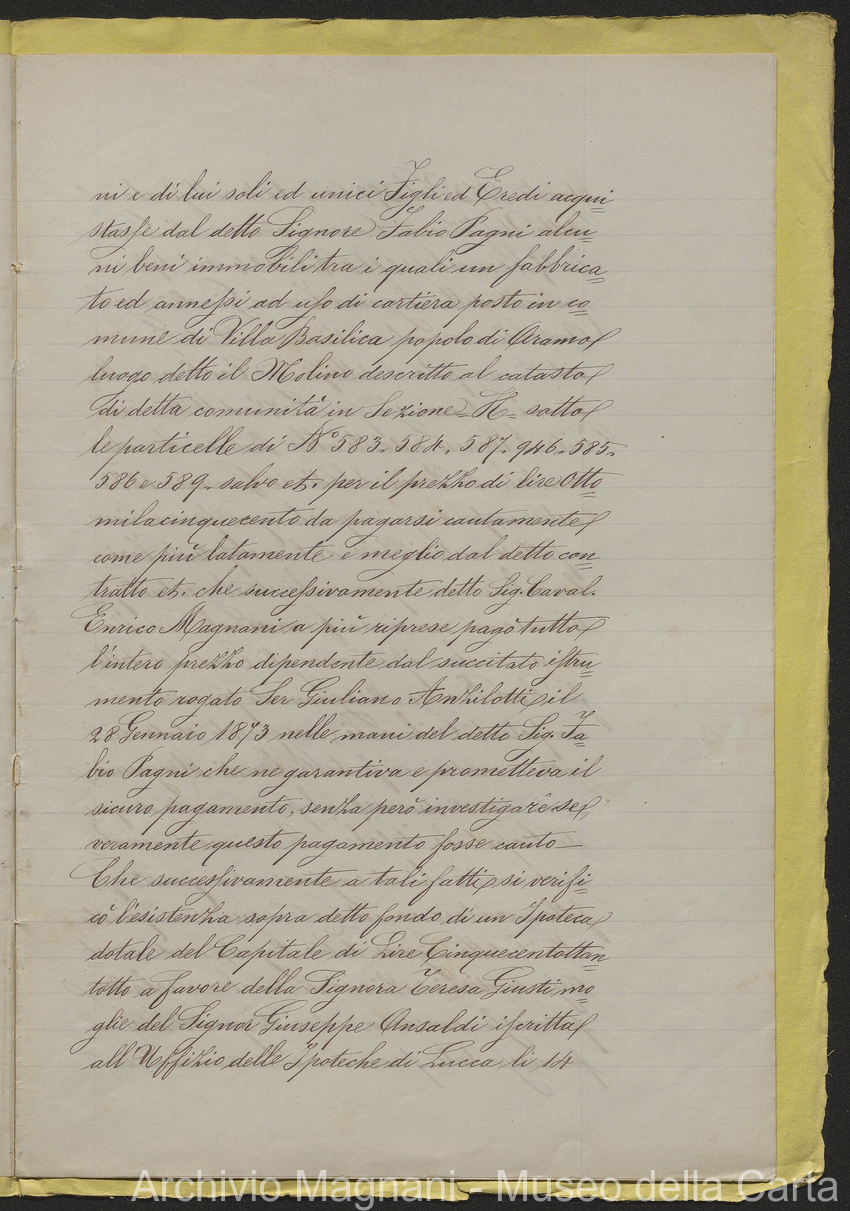 ni e di lui soli ed unici Figli ed Eredi acqui=
stasse dal detto Signore Fabio Pagni alcu=
ni beni immobili tra i quali un fabbrica=
to ed annessi ad uso di cartiera posto in co=
mune di Villa Basilica popolo di Aramo
luogo detto il Molino descritto al catasto
di detta comunità in Sezione= H= sotto
le particelle di N° 583. 584. 587. 946. 585.
586 e 589. salvo et. per il prezzo di lire Otto=
milacinquecento da pagarsi cautamente
come più latamente e meglio dal detto con=
tratto et. che successivamente detto Sig. Caval.
Enrico Magnani a più riprese pagò tutto
l'intero prezzo dipendente dal succitato istru=
mento rogato Ser Giuliano Anzilotti il
28 Gennaio 1873 nelle mani del detto Sig. Fa=
bio Pagni che ne garantiva e prometteva il
sicuro pagamento, senza però investigare se
veramente questo pagamento fosse cauto—
Che successivamente a tali fatti si verifi=
cò l'esistenza sopra detto fondo di un Ipoteca
dotale del Capitale di Lire Cinquecentottan=
totto a favore della Signora Teresa Giusti mo=
glie del Signor Giuseppe Ansaldi iscritta
all Uffizio delle Ipoteche di Lucca li 14
Archivio Magnani - Museo della Carta